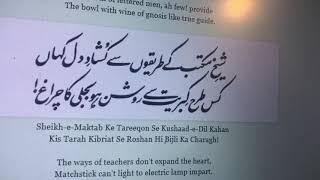 of lettered men, ah few! provide
The bowl with wine of gnosis like true guide.
شیخِ مکتب کے طریقوں سے کُشادِ دل کہاں
کس طرح کبریت سے روشن ہو بجلی کا چراغ!
Sheikh-e-Maktab Ke Tareeqon Se Kushaad-e-Dil Kahan
Kis Tarah Kibriat Se Roshan Hi Bijli Ka Charagh!
The ways of teachers don't expand the heart,
Matchstick can't light to electric lamp impart.